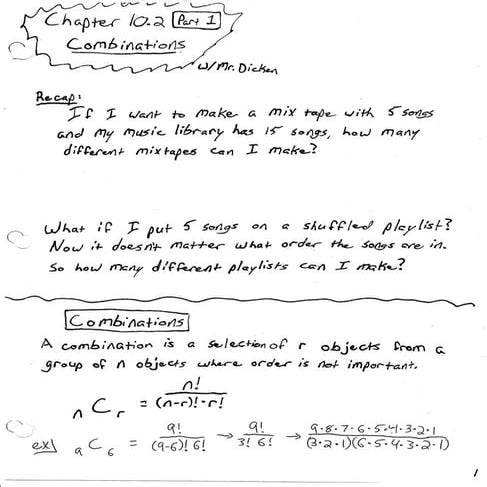 Chapter 10.2 Part 1
Combinations
w/Mr. Dicken
Recap:
If I want to make a mix tape with 5 songs
and my music library has 15 songs, how many
different mixtapes can I make?
What if I put 5 songs on a shuffled playlist?
Now it doesn't matter what order the songs are in.
So how many different playlists can I make?
Combinations
A combination is a selection of r objects from a
group of n objects where order is not important.
nCr = n!/((n-r)!·r!)
ex) 9C6 = 9!/((9-6)! 6!) → 9!/(3! 6!) → 9·8·7·6·5·4·3·2·1/((3·2·1)(6·5·4·3·2·1))
1